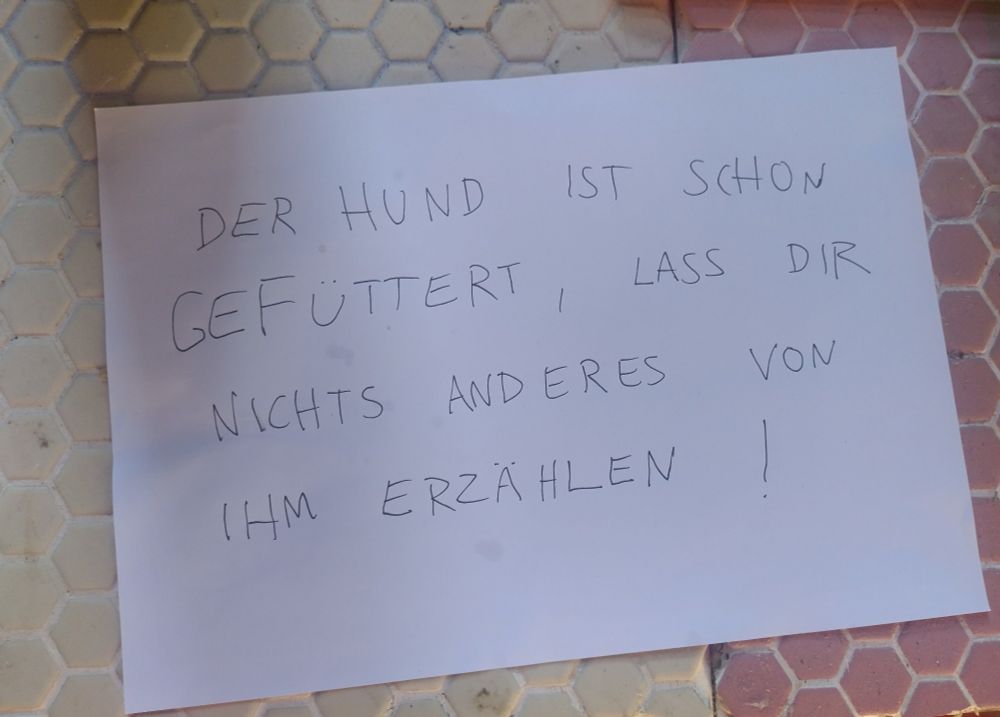 DER HUND IST SCHON
GEFÜTTERT, LASS DIR
NICHTS ANDERES VON
IHM ERZÄHLEN!